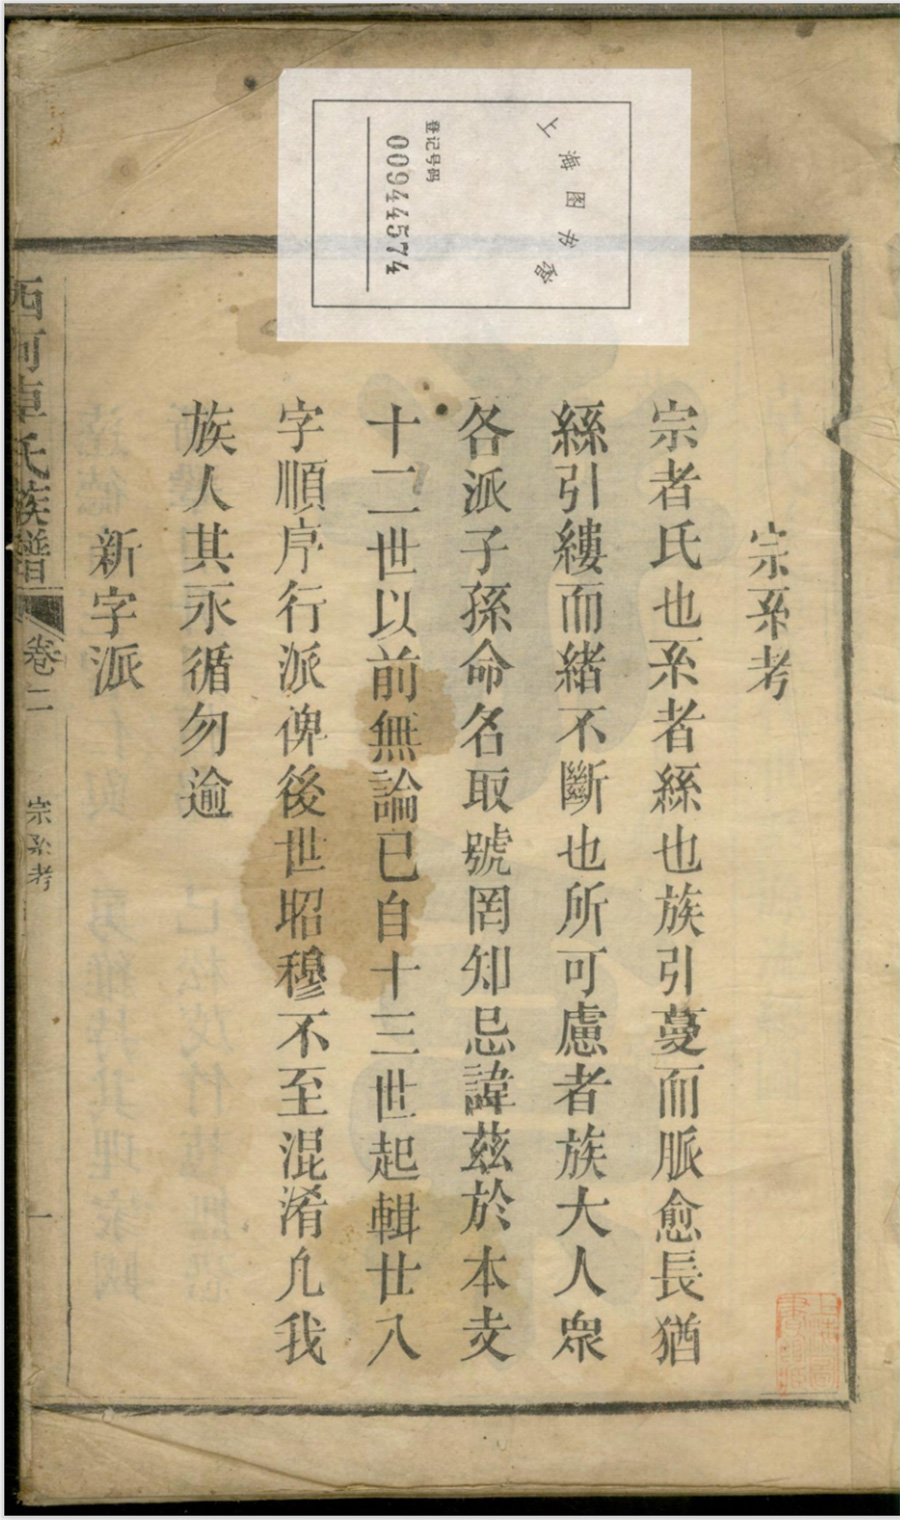 上海图书馆
登记号码
00944574
宗系考
宗者氏也系者絲也族引蔓而脈愈長猶
絲引縷而緒不斷也所可慮者族大人衆
各派子孫命名取號罔知忌諱茲於本支
十二世以前無論已自十三世起輯廿八
字順序行派俾後世昭穆不至混淆凡我
族人其永循勿逾
新字派
西河卓氏族譜
卷二
宗系考
一